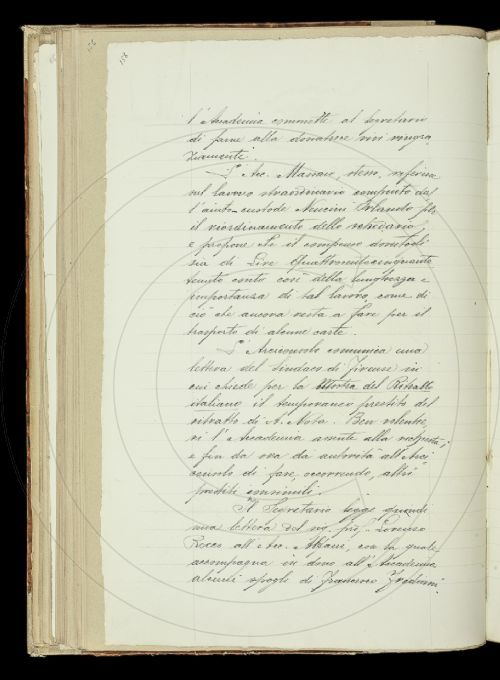 158
l'Accademia commette al Segretario
di farne alla donatrice vivi ringra-
ziamenti.
L'Acc. Massaio stesso, riferisce
sul lavoro straordinario compiuto dal
l'aiuto-custode Neucini Orlando per
il riordinamento dello schedario,
e propone che il compenso donatogli
sia di Lire Quattrocentocinquanta
tenuto conto così della lunghezza e
importanza di tal lavoro, come di
ciò che ancora resta a fare per il
trasporto di alcune carte.
L'Arciconsolo comunica una
lettera del Sindaco di Firenze in
cui chiede per la Mostra del Ritratto
italiano il temporaneo prestito del
ritratto di A. Nota. Ben volentie-
ri l'Accademia assente alla richiesta;
e fin da ora da autorità all'Arci
consolo di fare, occorrendo, altri
prestiti consimili.
Il Segretario legge quindi
una lettera del sig. prof. Lorenzo
Rocco all'Acc. Mazzi, con la quale
accompagna in dono all'Accademia
alcuni spogli di Francesco